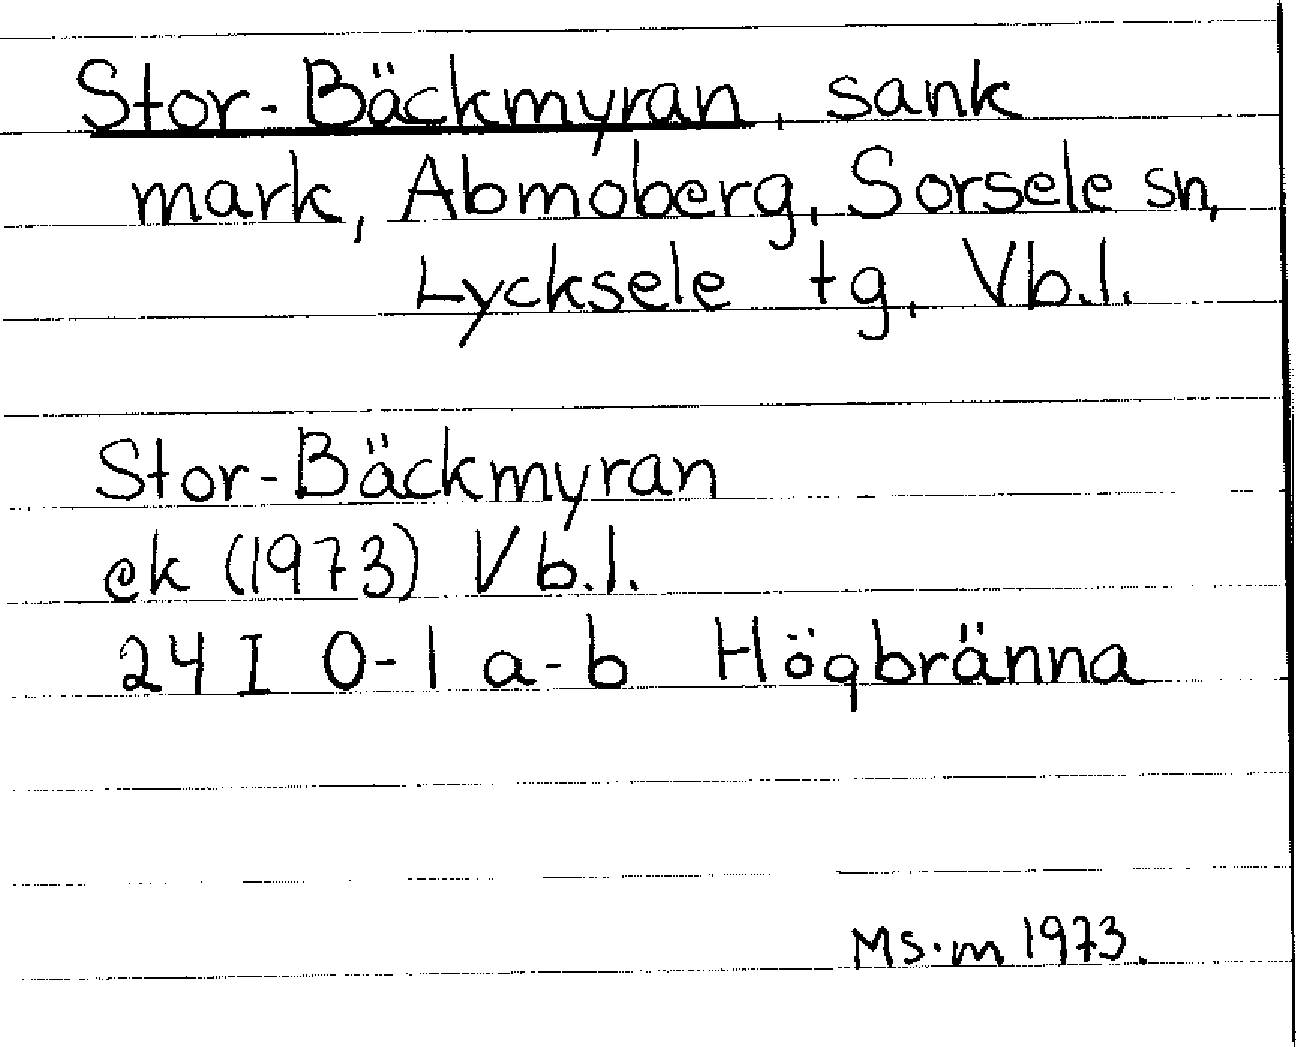 Stor-Bäckmyran, sank
mark, Abmoberg, Sorsele sn,
Lycksele tg, Vb.l.
Stor-Bäckmyran
ek (1973) Vb.l.
24 I 0-1 a-b Högbränna
MS·m 1973.